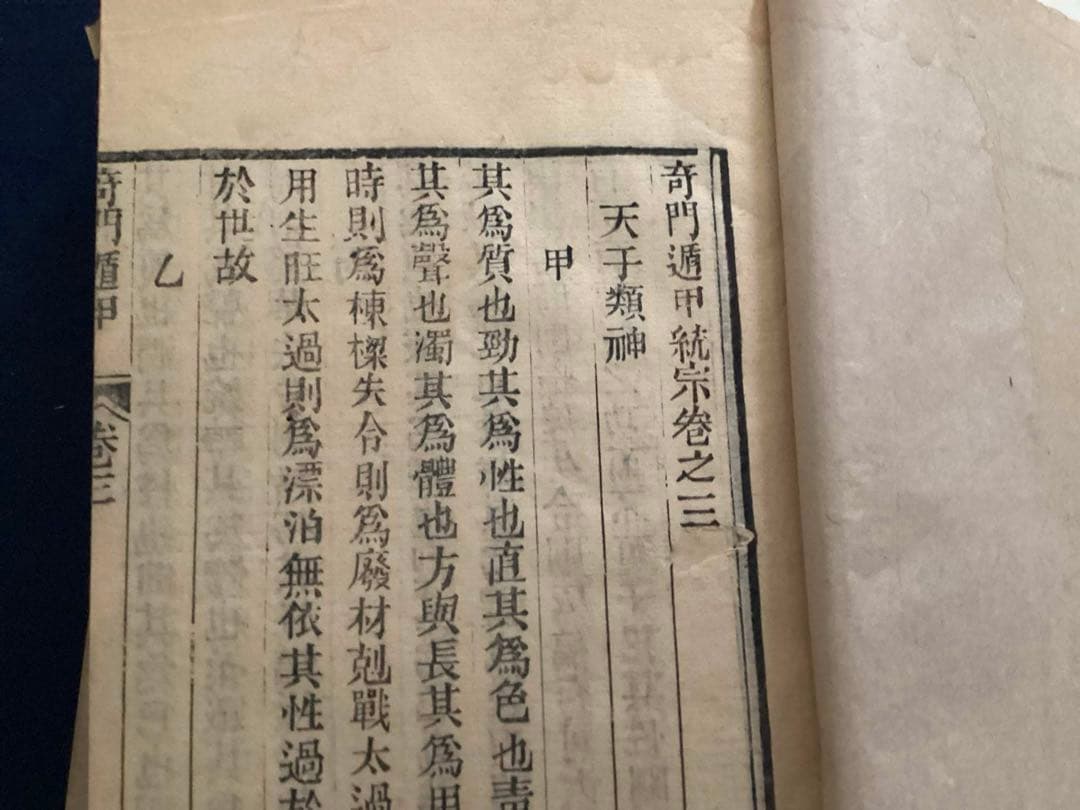 奇門遁甲統宗卷之三
天子類神
甲
其爲質也勁其爲性也直其爲色也青
其爲聲也濁其爲體也方與長其爲用
時則爲棟樑失令則爲廢材剋戰太過
用生旺太過則爲漂泊無依其性過於
於世故
乙
奇門遁甲
卷三